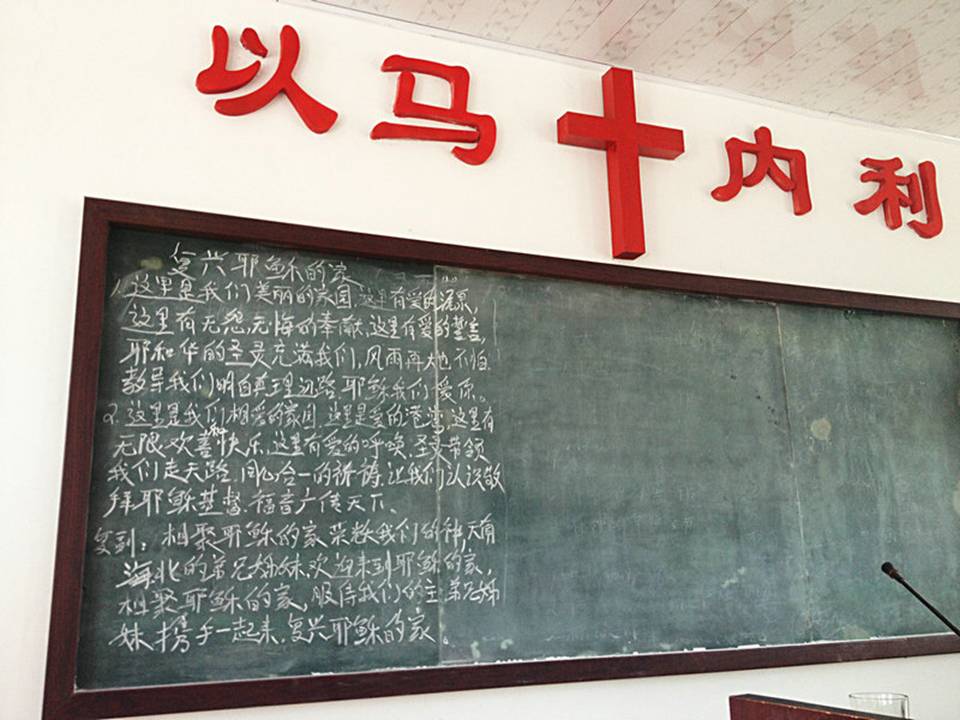 以马内利
复兴耶稣的家
1、这里是我们美丽的家园,这里有爱的源泉,
这里有无怨,无悔的奉献,这里有爱的誓言,
耶和华的圣灵充满我们,风雨再大也不怕.
教导我们明白真理道路.耶稣我们爱你。
2.这里是我们相爱的家园.这里是爱的港湾,这里有
无限欢喜和快乐,这里有爱的呼唤.圣灵带领
我们走天路.同心合一的祈祷.让我们认识敬
拜耶稣基督.福音广传天下.
复副:相聚耶稣的家荣耀我们的神,天南
海北的弟兄姊妹.欢迎来到耶稣的家,
相聚耶稣的家,服侍我们的主.弟兄姊
妹携手一起来.复兴耶稣的家。